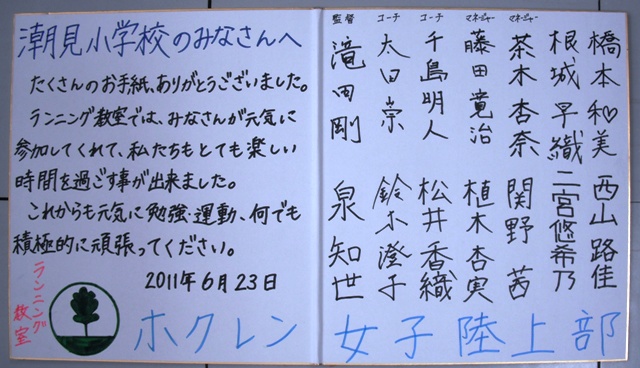 潮見小学校のみなさんへ
たくさんのお手紙、ありがとうございました。
ランニング教室では、みなさんが元気に
参加してくれて、私たちもとても楽しい
時間を過ごす事が出来ました。
これからも元気に勉強・運動、何でも
積極的に頑張ってください。
2011年6月23日
ランニング
教室
ホクレン 女子陸上部
橋本和♡美
西山路佳
根城早織
二宮悠希乃
マネージャー
茶木杏奈
関野茜
マネージャー
藤田竟治
植木杏実
コーチ
千島明人
松井香織
コーチ
太田崇
鈴木澄子
監督
滝田剛
泉知世